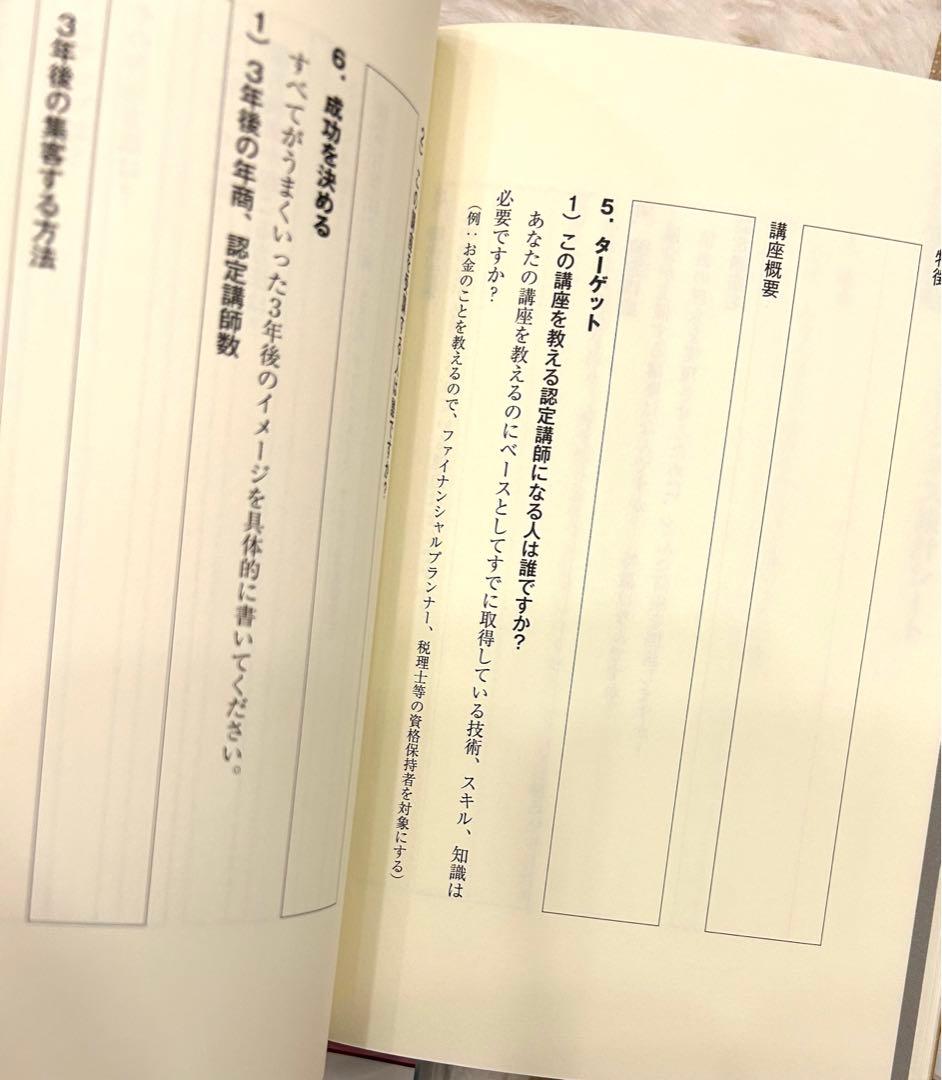 特徴
講座概要
5．ターゲット
1）この講座を教える認定講師になる人は誰ですか？
あなたの講座を教えるのにベースとしてすでに取得している技術、スキル、知識は
必要ですか？
（例：お金のことを教えるので、ファイナンシャルプランナー、税理士等の資格保持者を対象にする）
6．成功を決める
すべてがうまくいった3年後のイメージを具体的に書いてください。
1）3年後の年商、認定講師数
3年後の集客する方法